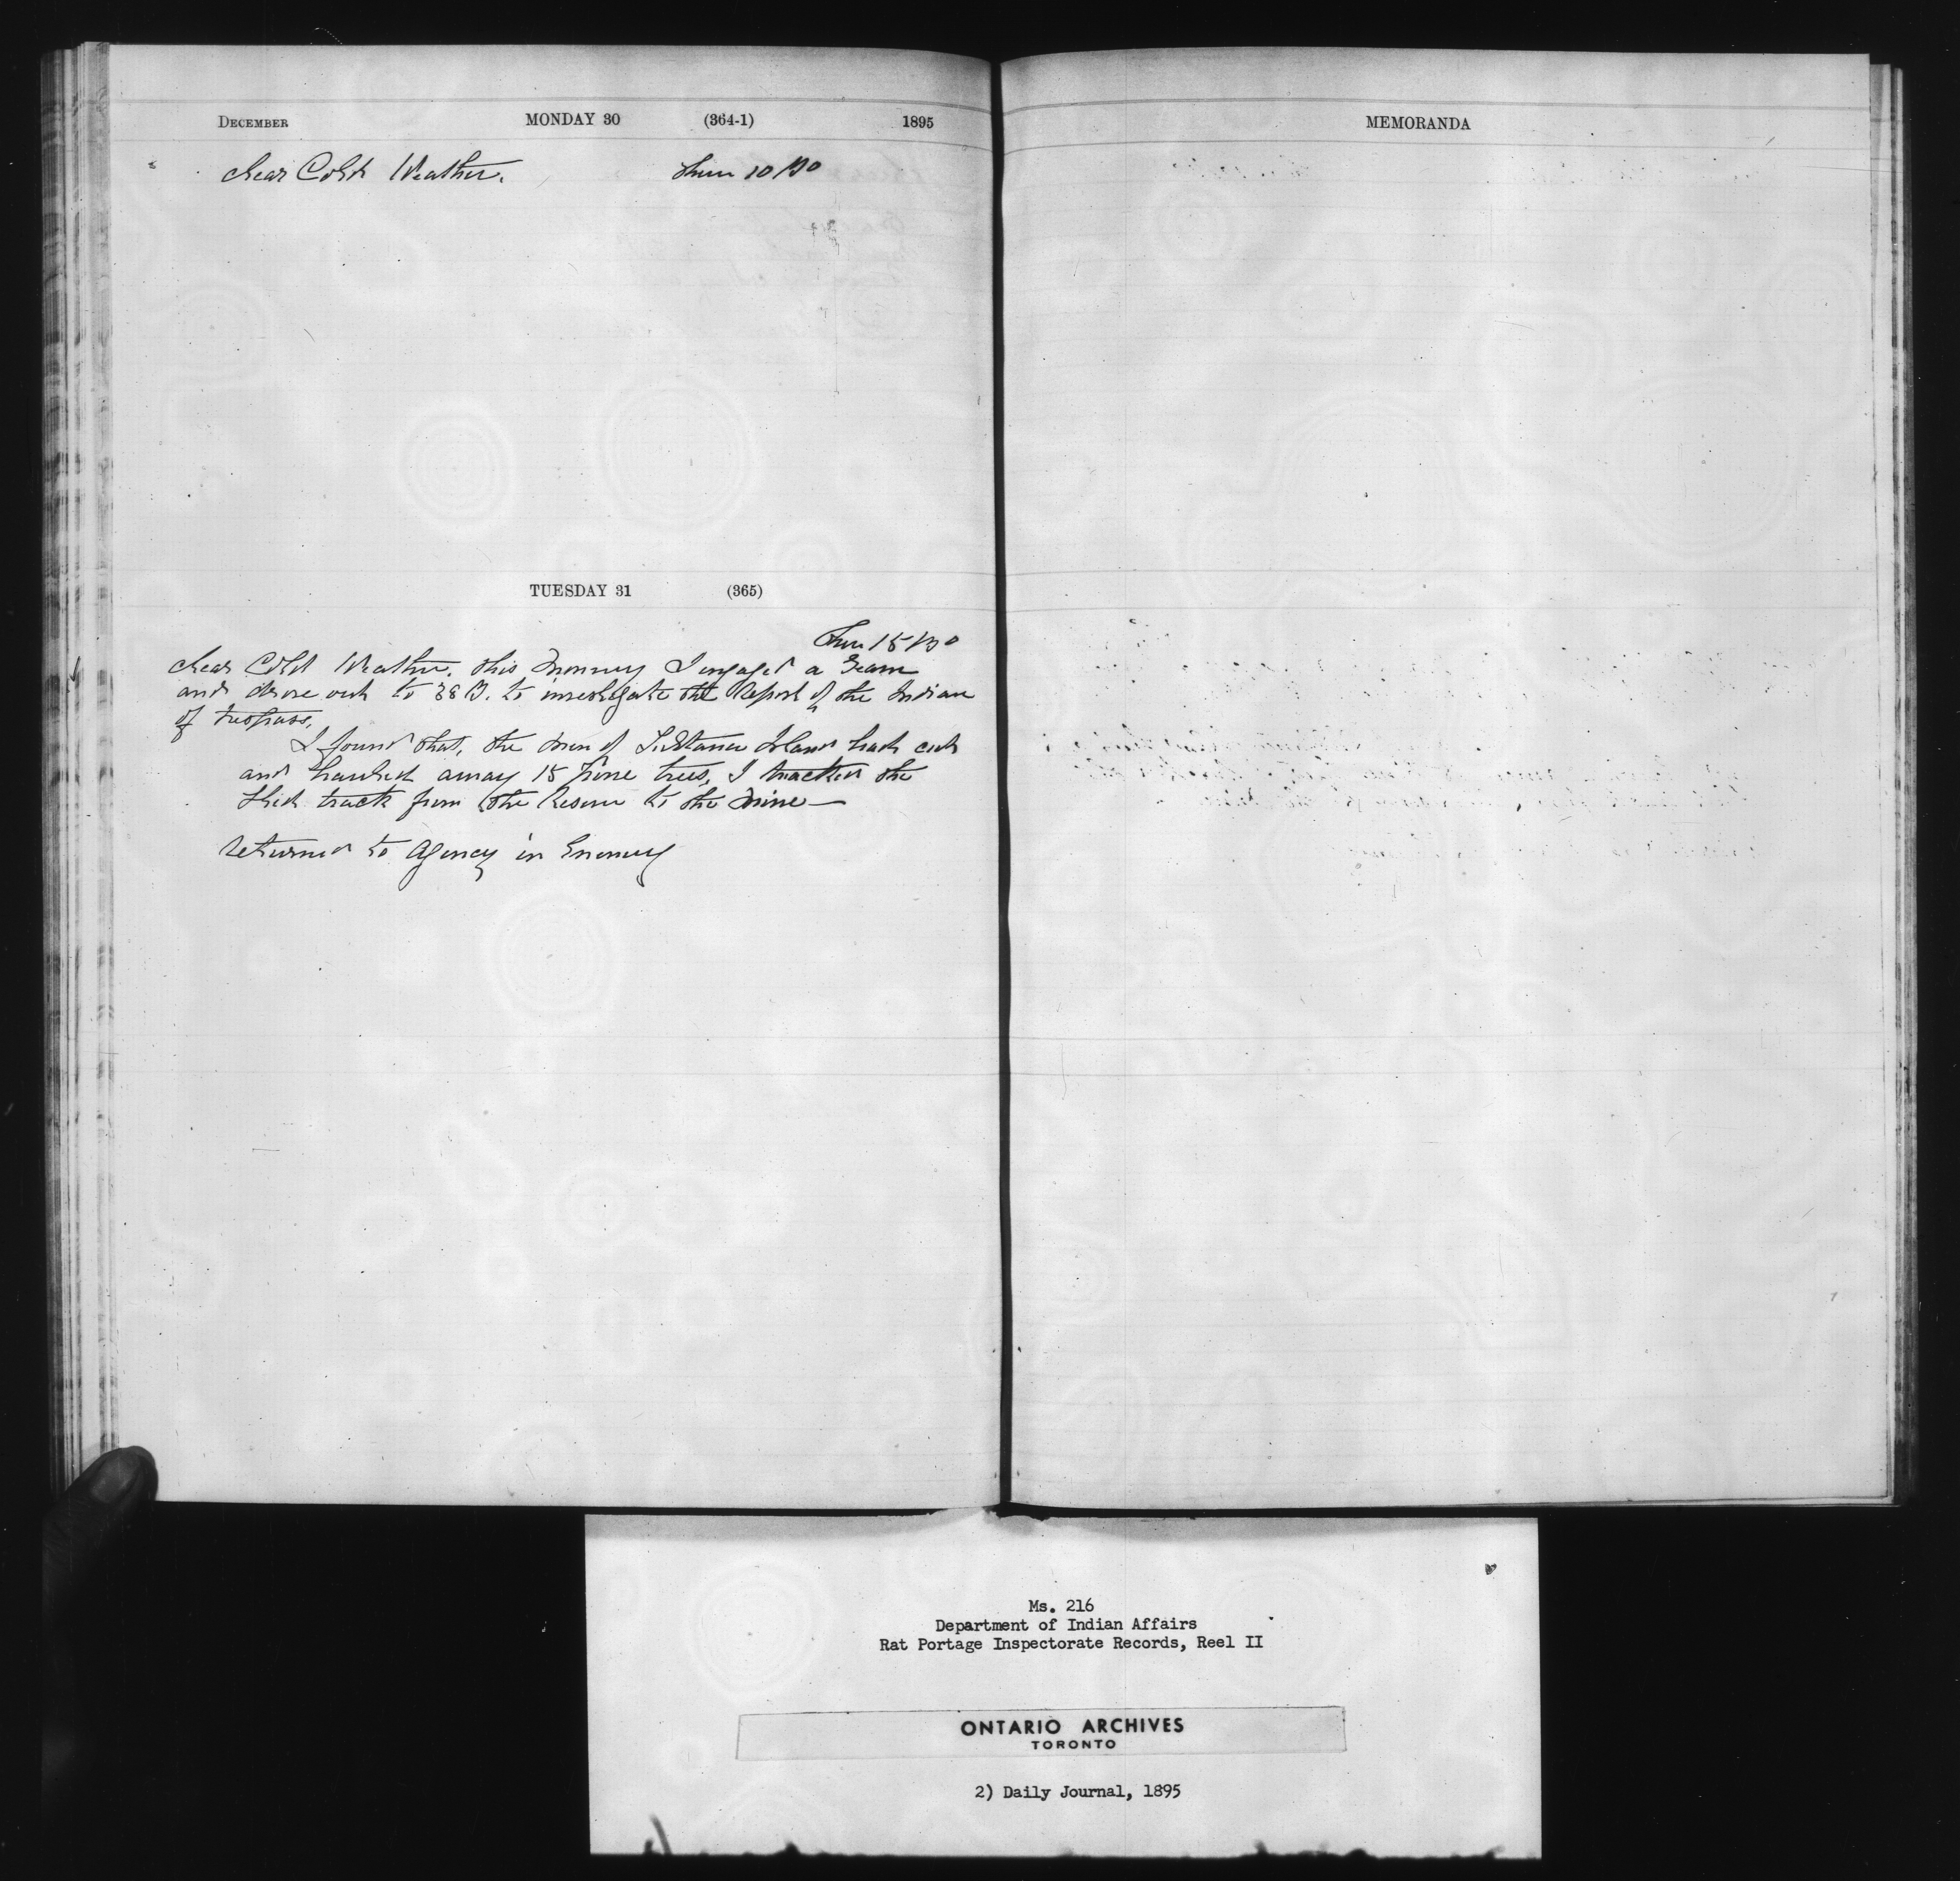 DECEMBER MONDAY 30 (364-1) 1895
Clear Cold Weather. Ther 10 B 0
TUESDAY 31 (365)
Ther 15 B 0
Clear Cold Weather. This Morning I engaged a Team
and drove out to 38 B. to investigate the Report of the Indian
of trespass.
I found that, the men of Island had cut
and hauled away 15 pine trees, I tracked the
track from the Reserve to the Mine—
Returned to Agency in Evening
MEMORANDA
Ms. 216
Department of Indian Affairs
Rat Portage Inspectorate Records, Reel II
ONTARIO ARCHIVES
TORONTO
2) Daily Journal, 1895